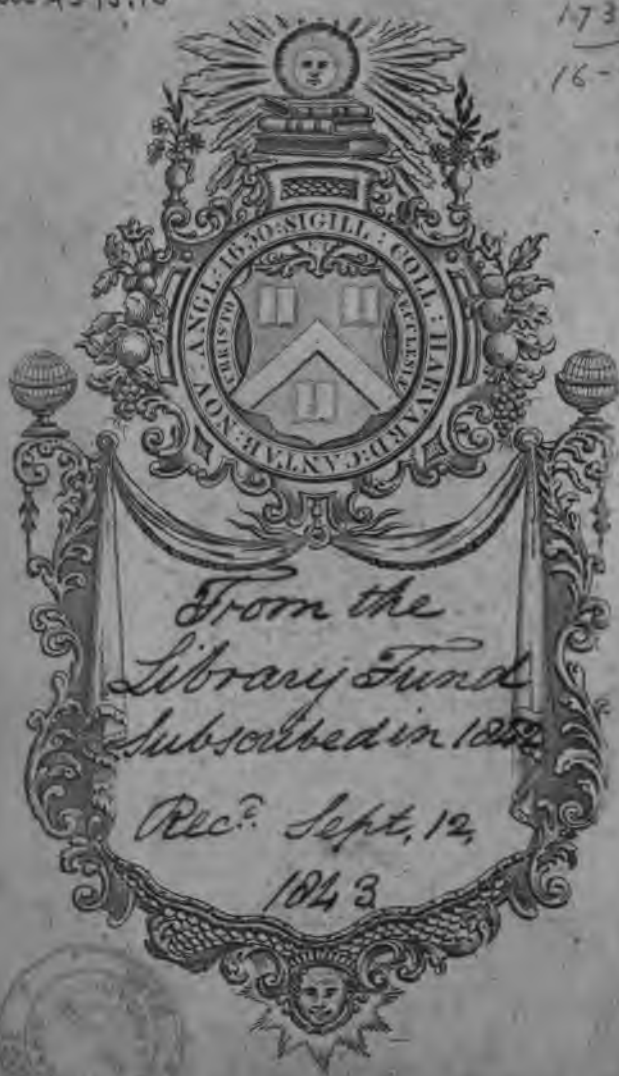 173
16-
SIGILL : COLL : HARVARD : CANTAB : NOV ANGL : 1650 :
CHRISTO ECCLESIÆ
From the
Library Fund
Subscribed in 1842
Rec.d Sept, 12,
1843